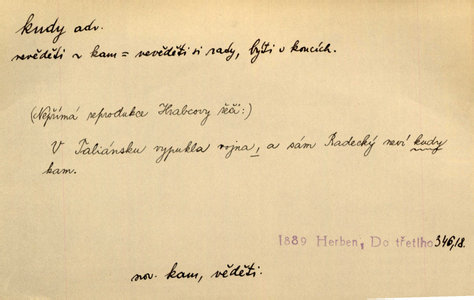 kudy adv.
nevěděti ~ kam = nevěděti si rady, býti v koncích.
(Nepřímá reprodukce Hrabcovy řeči:)
V Taliánsku vypukla vojna, a sám Radecký neví kudy
kam.
1889 Herben, Do třetího 346/8.
srov. kam, věděti.